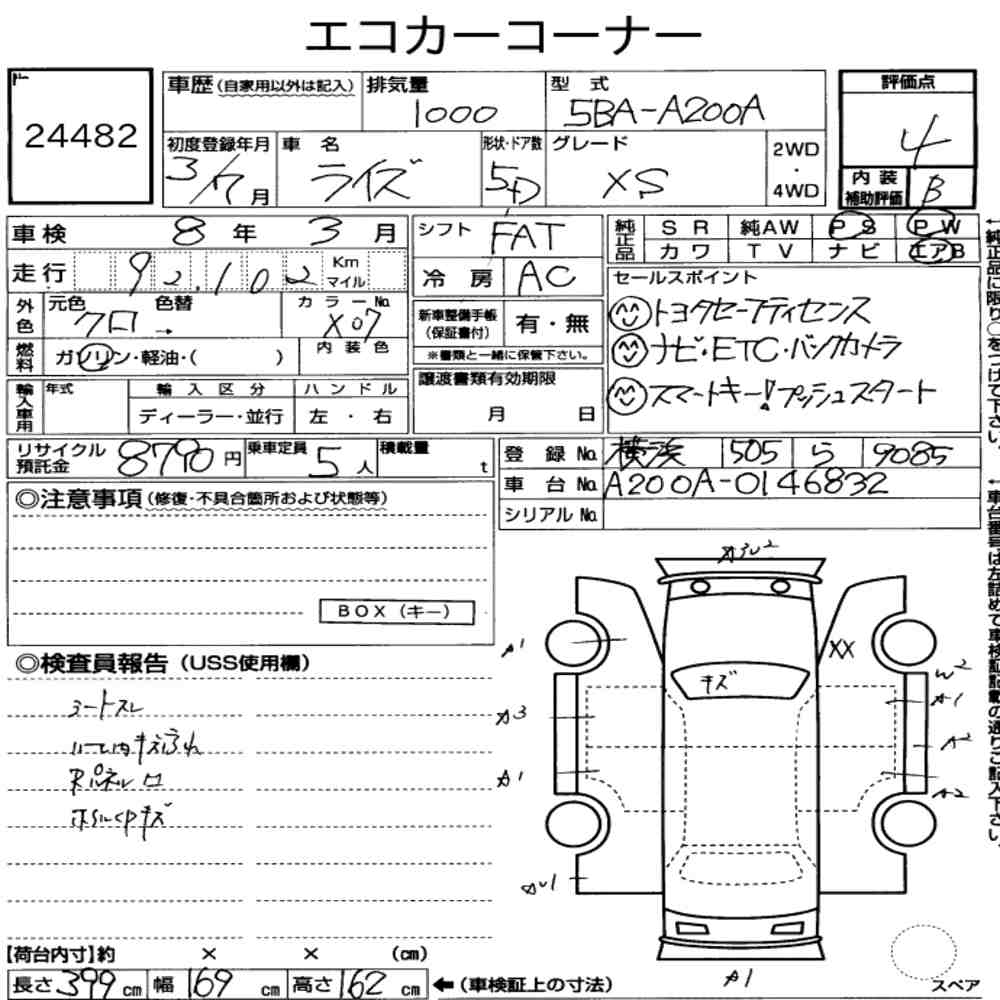 エコカーコーナー
24482
車歴(自家用以外は記入) 排気量 1000 型式 5BA-A200A
評価点 4
初度登録年月 3/7月 車名 ライズ 形状・ドア数 5D グレード XS 2WD・4WD
内装補助評価 B
車検 8年 3月 シフト FAT
純正品 SR 純AW PS PW
カワ TV ナビ エアB
走行 92,102 Km マイル 冷房 AC
セールスポイント
トヨタセーフティセンス
ナビ・ETC・バックカメラ
スマートキー!プッシュスタート
外色 元色 クロ → 色替 カラーNo. X07
新車整備手帳(保証書付) 有・無
※書類と一緒に保管下さい。
燃料 ガソリン・軽油・( ) 内装色
譲渡書類有効期限
月 日
輸入車用 年式 輸入区分 ハンドル
ディーラー・並行 左・右
リサイクル預託金 8790円 乗車定員 5人 積載量 t
登録No. 横浜 505 ら 9085
車台No. A200A-0146832
シリアルNo.
◎注意事項(修復・不具合箇所および状態等)
BOX(キー)
◎検査員報告(USS使用欄)
シートスレ
ハンドル
キズ
A1
A3
A1
XX
キズ
W2
A1
A2
A2
A1
【荷台内寸】約 × × (cm)
長さ 399 cm 幅 169 cm 高さ 162 cm ←(車検証上の寸法)
スペア
↑純正品に限り○をつけて下さい。
↑車台番号は左詰めで車検証記載の通りご記入下さい。